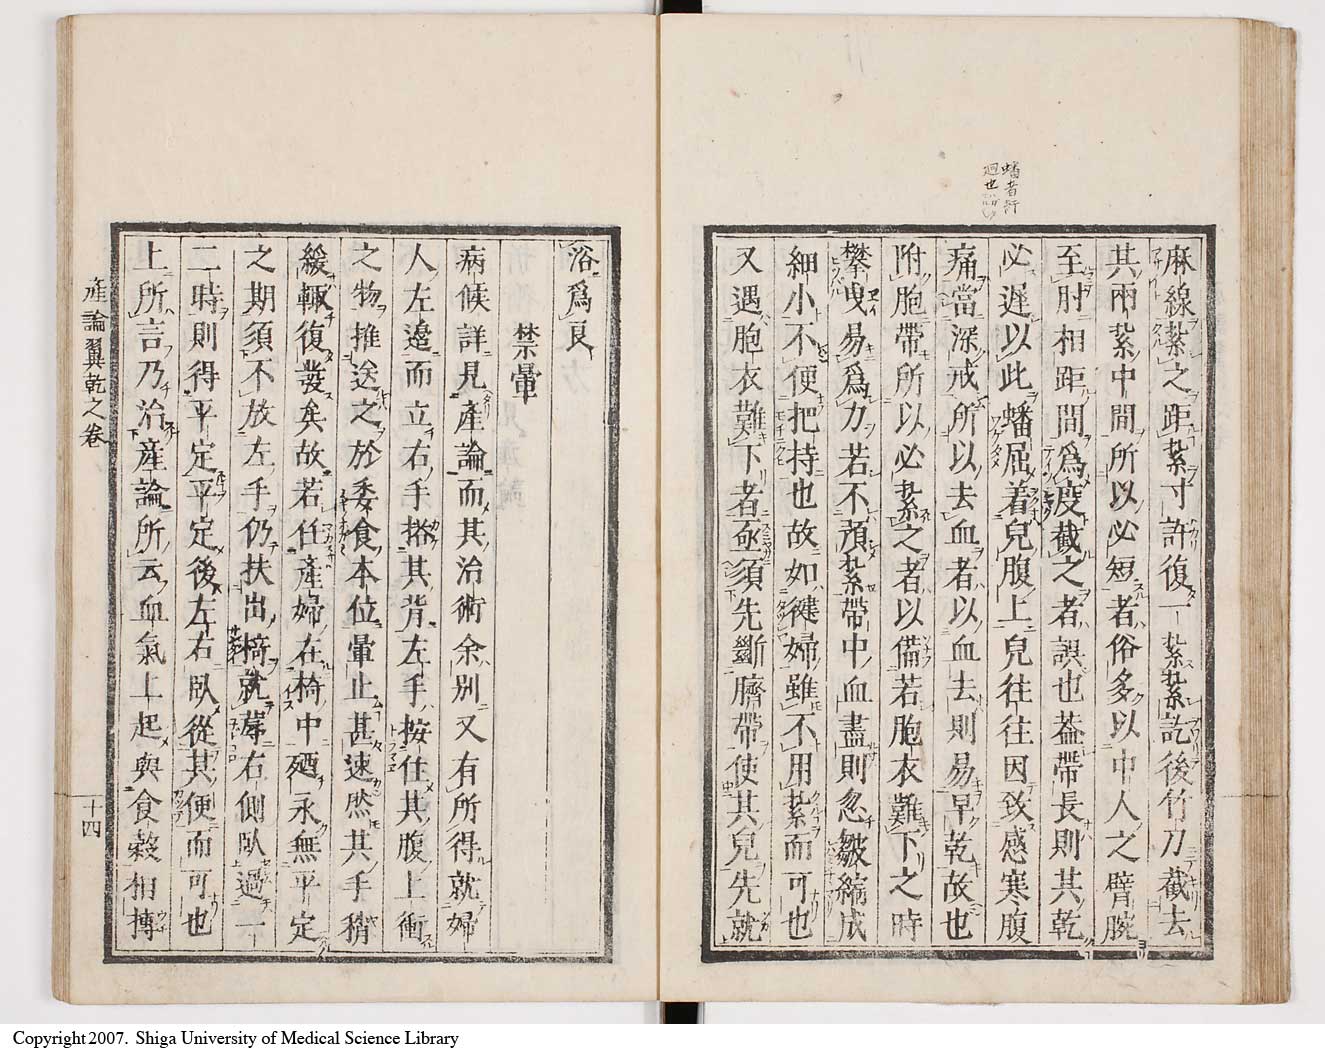 麻線紮之距紮寸許復一紮紮訖後竹刀截去
其兩紮中間所以必短者俗多以中人之臂腕
至肘相距間爲度截之者誤也葢帶長則其乾
必遲以此蟠屈着兒腹上兒往往因致感寒腹
痛當深戒所以去血者以血去則易早乾故也
附胞帶所以必紮之者以備若胞衣難下之時
攀曳易爲力若不預紮帶中血盡則忽皺縮成
細小不便把持也故如健婦雖不用紮而可也
又遇胞衣難下者亟須先斷臍帶使其兒先就
蟠者行
廻也
浴爲良
禁暈
病候詳見產論而其治術余別又有所得就婦
人左邊而立右手搭其背左手按住其腹上衝
之物推送之於委食本位暈止甚速然其手稍
緩輒復發矣故若任產婦在椅中廼永無平定
之期須不放左手仍扶出椅就蓐右側臥過一
二時則得平定平定後左右臥從其便而可也
上所言乃治產論所云血氣上起與食穀相搏
產論翼乾之卷
十四
Copyright 2007. Shiga University of Medical Science Library